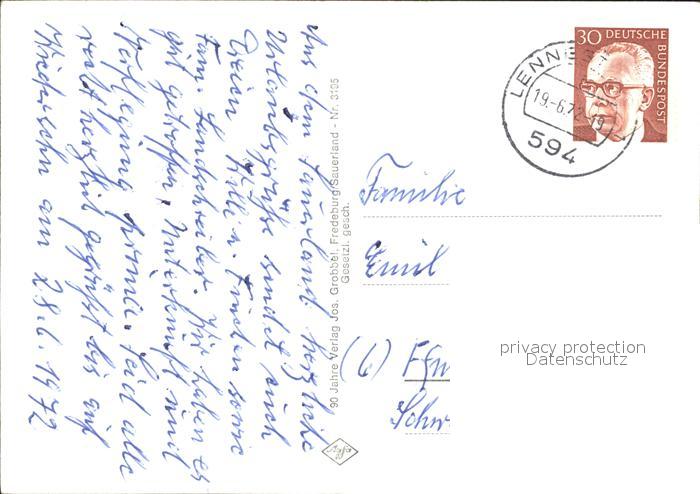 Aus dem Sauerland herzliche
Urlaubsgrüße sendet euch
Willi u. Frieden sowie
Fam. Landschreiber. Wir haben es
gut getroffen, Unterkunft und
Verpflegung prima. Seid alle
recht herzlich gegrüßt bis auf
Wiedersehn am 28.6.1972
90 Jahre Verlag Jos. Grobbel, Fredeburg/Sauerland - Nr. 3195
Gesetzl. gesch.
30 DEUTSCHE
BUNDESPOST
19.-6.72-19
594
Familie
Emil
(6) Ffm
Schw
privacy protection
Datenschutz